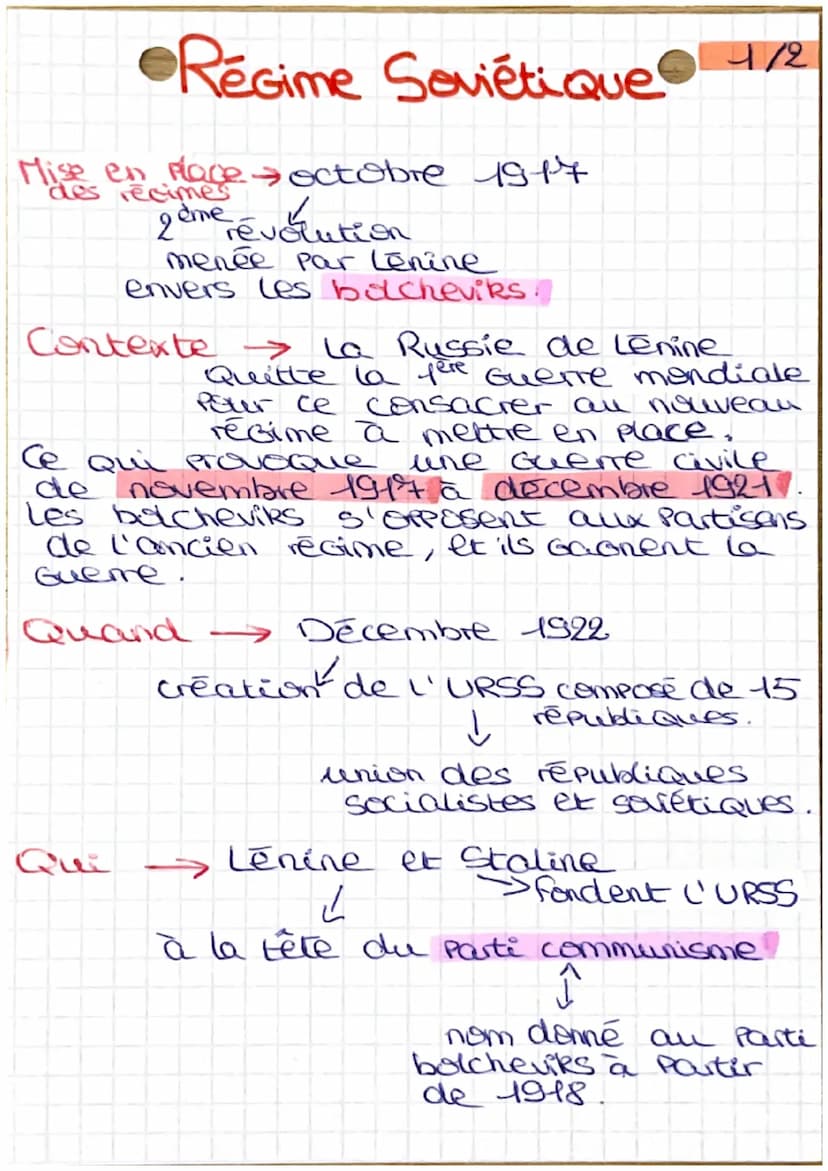 Régime Soviétique
1/2
Mise en place → octobre 1917
des régimes
2ème révolution
menée par Lénine
envers les bolcheviks.
Contexte → La Russie de Lénine
quitte la 1ère Guerre mondiale
pour ce consacrer au nouveau
régime à mettre en place.
Ce qui provoque une Guerre civile
de novembre 1917 à décembre 1921.
Les bolcheviks s'opposent aux partisans
de l'ancien régime, et ils gagnent la
Guerre.
Quand → Décembre 1922
création de l'URSS composé de 15
républiques.
union des républiques
socialistes et soviétiques.
Qui → Lénine et Staline
→ fondent l'URSS
à la tête du parti communisme
nom donné au parti
bolcheviks à partir
de 1918.